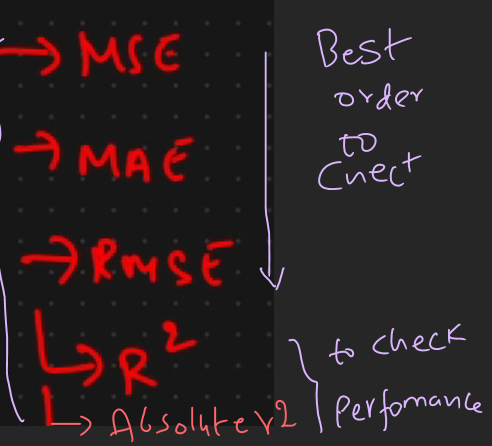 → MSE
→ MAE
→ RMSE
→ R²
→ Absolute r2
Best
order
to
Cnect
to check
Perfomance